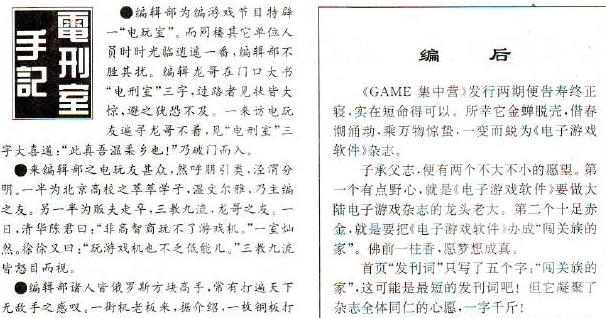 電刑室
手記
●编辑部为编游戏节目特辟
一“电玩室”。而同楼其它单位人
员时时光临逍遥一番,编辑部不
胜其扰。编辑龙哥在门口大书
“电刑室”三字,过路者见状皆大
惊,避之犹恐不及。一来访电玩
友遍寻龙哥不着,见“电刑室”三
字大喜道:“此真吾温柔乡也!”乃破门而入。
●来编辑部之电玩友甚众,然呼朋引类,泾渭分
明。一半为北京高校之莘莘学子,温文尔雅,乃主编
之友。另一半为贩夫走卒,三教九流,龙哥之友。一
日,清华陈君曰:“非高智商玩不了游戏机。”一室灿
然。徐徐又曰:“玩游戏机也不乏低能儿。”三教九流
皆怒目而视。
●编辑部诸人皆俄罗斯方块高手,常有打遍天下
无敌手之感叹。一街机老板来,据介绍,一枚铜板打
编 后
《GAME 集中营》发行两期便告寿终正
寝,实在短命得可以。所幸它金蝉脱壳,借春
潮涌动,乘万物惊蛰,一变而蜕为《电子游戏
软件》杂志。
子承父志,便有两个不大不小的愿望。第
一个有点野心,就是《电子游戏软件》要做大
陆电子游戏杂志的龙头老大。第二个十足赤
金,就是要把《电子游戏软件》办成“闯关族的
家”。佛前一柱香,愿梦想成真。
首页“发刊词”只写了五个字:“闯关族的
家”,这可能是最短的发刊词吧!但它凝聚了
杂志全体同仁的心愿,一字千斤!